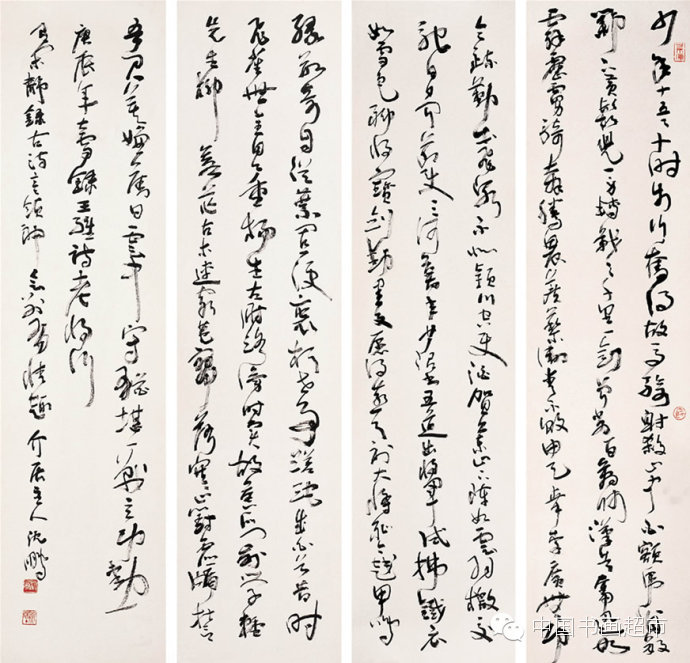 少年十五二十時步行奪得胡馬騎射殺山中白額虎肯數
鄴下黃鬚兒一身轉戰三千里一劍曾當百萬師漢兵奮迅如
霹靂虜騎奔騰畏蒺藜衛青不敗由天幸李廣無功
令疏勒出飛泉不似潁川空使酒賀蘭山下陣如雲羽檄交
馳日夕聞節使三河募年少詔書五道出將軍試拂鐵衣
如雪色聊持寶劍動星文願得燕弓射大將恥令越甲鳴
緣數奇自從棄置便衰朽世事蹉跎成白首昔時
飛雀無全目今日垂楊生左肘路旁時賣故侯瓜門前學種
先生柳蒼茫古木連窮巷寥落寒山對虛牖誓
吾君莫嫌舊日雲中守猶堪一戰立功勳
庚辰年春錄王維詩老將行
靜錄古詩 介居主人沈鵬
中国书画超市